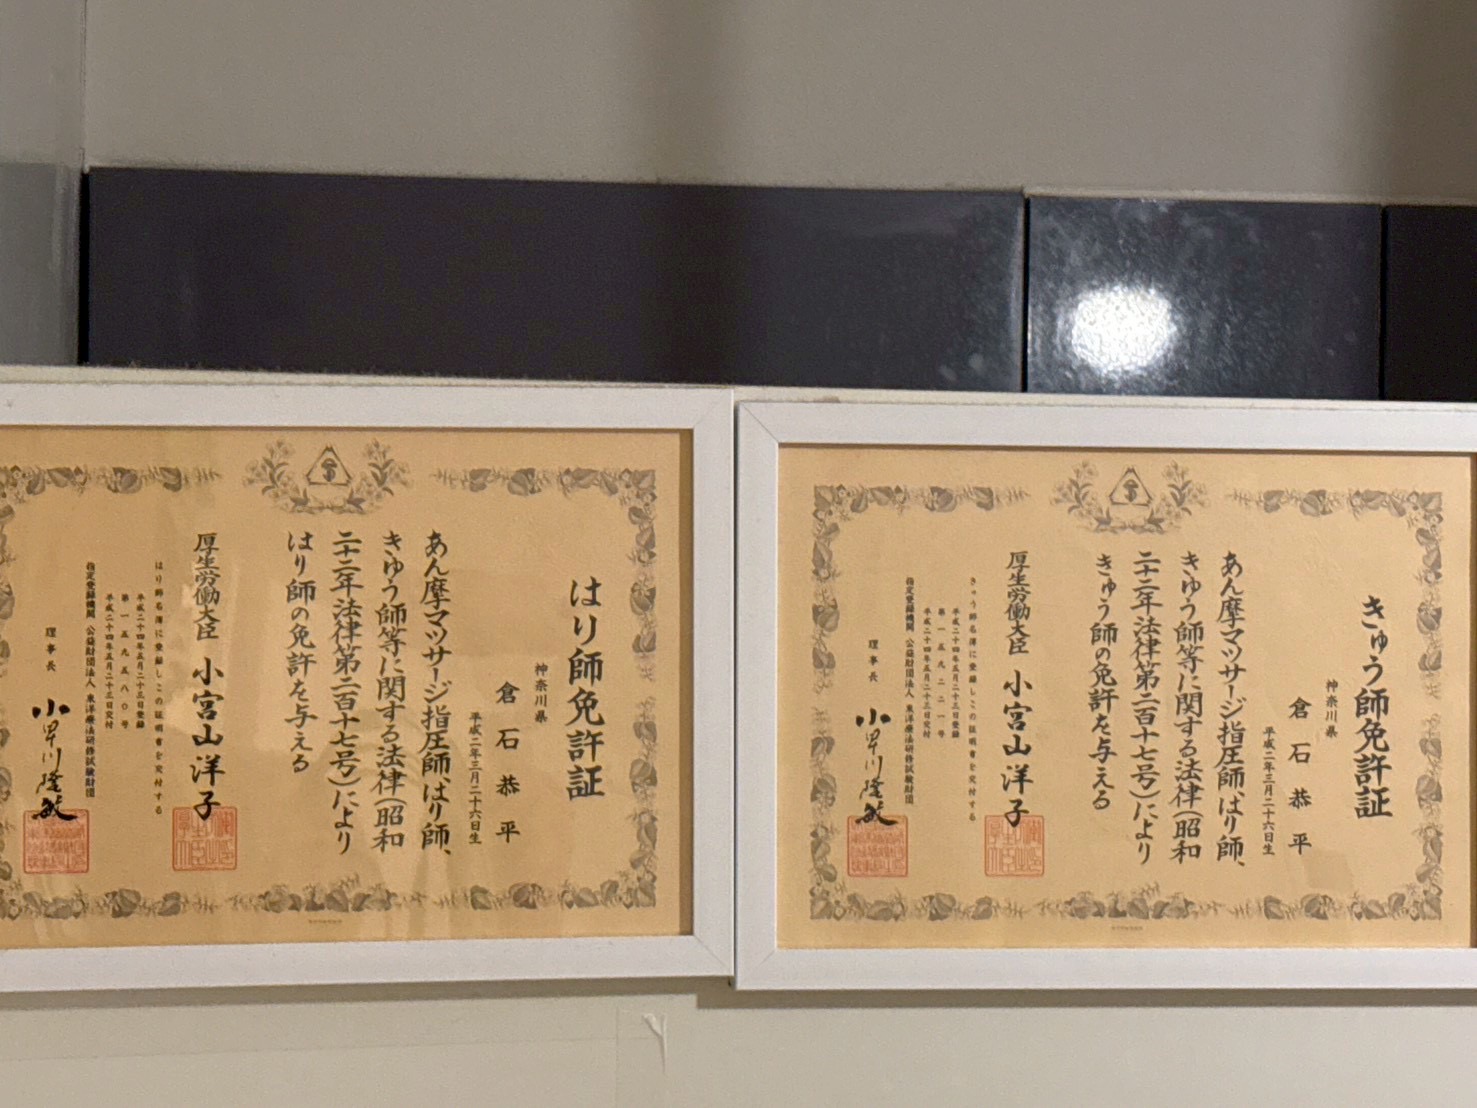 はり師免許証
神奈川県
倉石恭平
平成二年三月二十六日生
あん摩マツサージ指圧師、はり師、
きゆう師等に関する法律(昭和
二十二年法律第二百十七号)により
はり師の免許を与える
厚生労働大臣 小宮山洋子
はり師名簿に登録しこの証明書を交付する
平成二十四年五月二十三日登録
第一五九五八〇号
平成二十四年五月二十三日交付
指定登録機関 公益財団法人 東洋療法研修試験財団
理事長 小早川隆敏
きゆう師免許証
神奈川県
倉石恭平
平成二年三月二十六日生
あん摩マツサージ指圧師、はり師、
きゆう師等に関する法律(昭和
二十二年法律第二百十七号)により
きゆう師の免許を与える
厚生労働大臣 小宮山洋子
きゆう師名簿に登録しこの証明書を交付する
平成二十四年五月二十三日登録
第一五九二二一号
平成二十四年五月二十三日交付
指定登録機関 公益財団法人 東洋療法研修試験財団
理事長 小早川隆敏